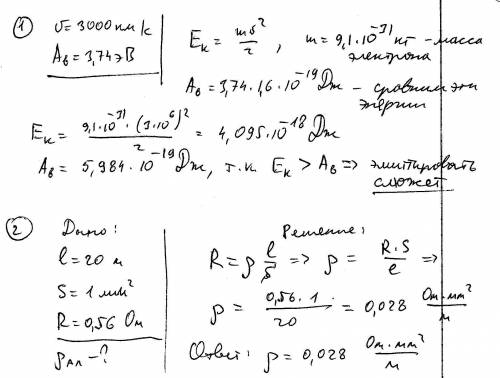 1
υ = 3000 км/с
Aв = 3,74 эВ
Eк = mυ²/2, m = 9,1·10⁻³¹ кг - масса
электрона
Aв = 3,74·1,6·10⁻¹⁹ Дж - сравним эти
энергии
Eк = 9,1·10⁻³¹·(3·10⁶)²/2 = 4,095·10⁻¹⁸ Дж
Aв = 5,984·10⁻¹⁹ Дж, т.к. Eк > Aв => эмитировать
сможет
2
Дано:
l = 20 м
S = 1 мм²
R = 0,56 Ом
ρАл - ?
Решение:
R = ρ l/S => ρ = R·S/l =>
ρ = 0,56·1/20 = 0,028 Ом·мм²/м
Ответ: ρ = 0,028 Ом·мм²/м